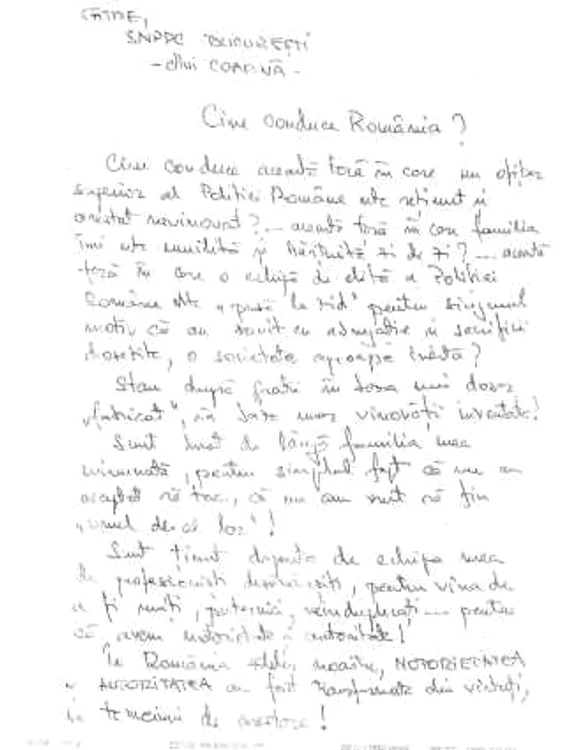 CĂTRE,
SNPPC BUCUREȘTI
- dlui COARNĂ -
Cine conduce România?
Cine conduce această țară în care un ofițer
superior al Poliției Române este reținut și
arestat nevinovat? ... această țară în care familia
îmi este umilită și hărțuită zi de zi? ... această
țară în care o echipă de elită a Poliției
Române este „pusă la zid" pentru singurul
motiv că au servit cu abnegație și sacrificii
o societate aproape
Stau după gratii în baza unui dosar
„fabricat", în baza unor vinovății inventate!
Sunt luat de lângă familia mea
minunată, pentru simplul fapt că nu am
acceptat să tac, că nu am vrut să fiu
„omul de-al lor"!
Sunt ținut departe de echipa mea
de profesioniști, pentru vina de
a fi uniți, puternici, ... pentru
că avem notorietate și autoritate!
În România zilelor noastre, NOTORIETATEA
și AUTORITATEA au fost transformate din virtuți,
în temeiuri de arestare!